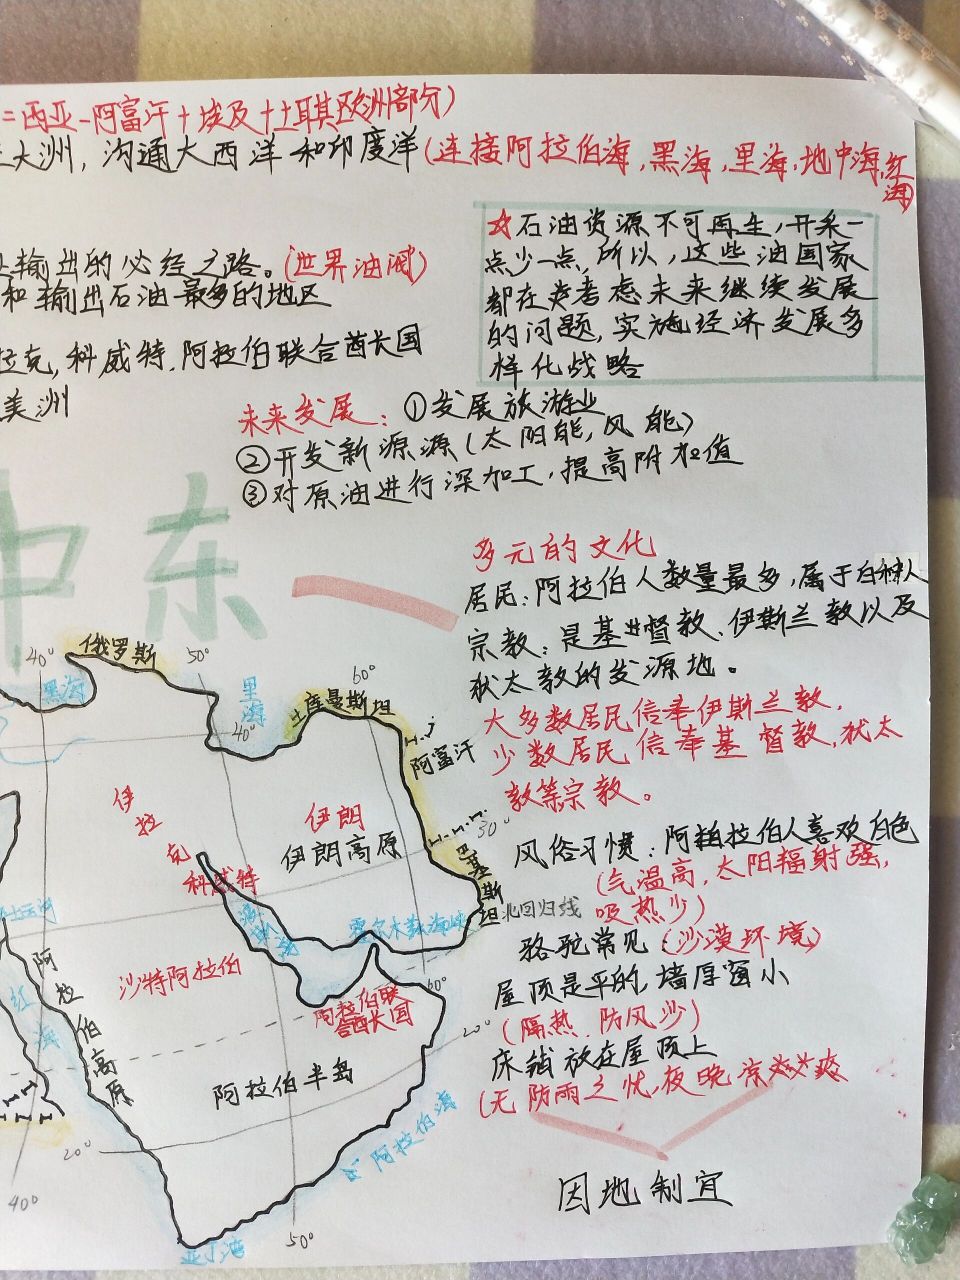 =西亚-阿富汗+埃及+土耳其欧洲部分)
大洲,沟通大西洋和印度洋(连接阿拉伯海,黑海,里海,地中海,红海)
☆石油资源不可再生,开采一
点少一点,所以,这些油国家
都在考虑未来继续发展
的问题,实施经济发展多
样化战略
输出的必经之路。(世界油阀)
和输出石油最多的地区
拉克,科威特,阿拉伯联合酋长国
美洲
未来发展:①发展旅游业
②开发新源源(太阳能,风能)
③对原油进行深加工,提高附加值
中东
多元的文化
居民:阿拉伯人数量最多,属于白种人
宗教:是基督教、伊斯兰教以及
犹太教的发源地。
大多数居民信奉伊斯兰教,
少数居民信奉基督教,犹太
教等宗教。
风俗习惯:阿拉伯人喜欢白色
(气温高,太阳辐射强,
吸热少)
骆驼常见:(沙漠环境)
屋顶是平的,墙厚窗小
(隔热 防风沙)
床铺放在屋顶上
(无防雨之忧,夜晚凉爽)
因地制宜
40°
俄罗斯
50°
黑海
里海
60°
土库曼斯坦
40°
阿富汗
伊拉克
伊朗
伊朗高原
30°
巴基斯坦
科威特
北回归线
霍尔木兹海峡
红海
阿拉伯高原
沙特阿拉伯
阿拉伯联
合酋长国
60°
20°
阿拉伯半岛
阿拉伯海
20°
40°
50°
亚丁湾